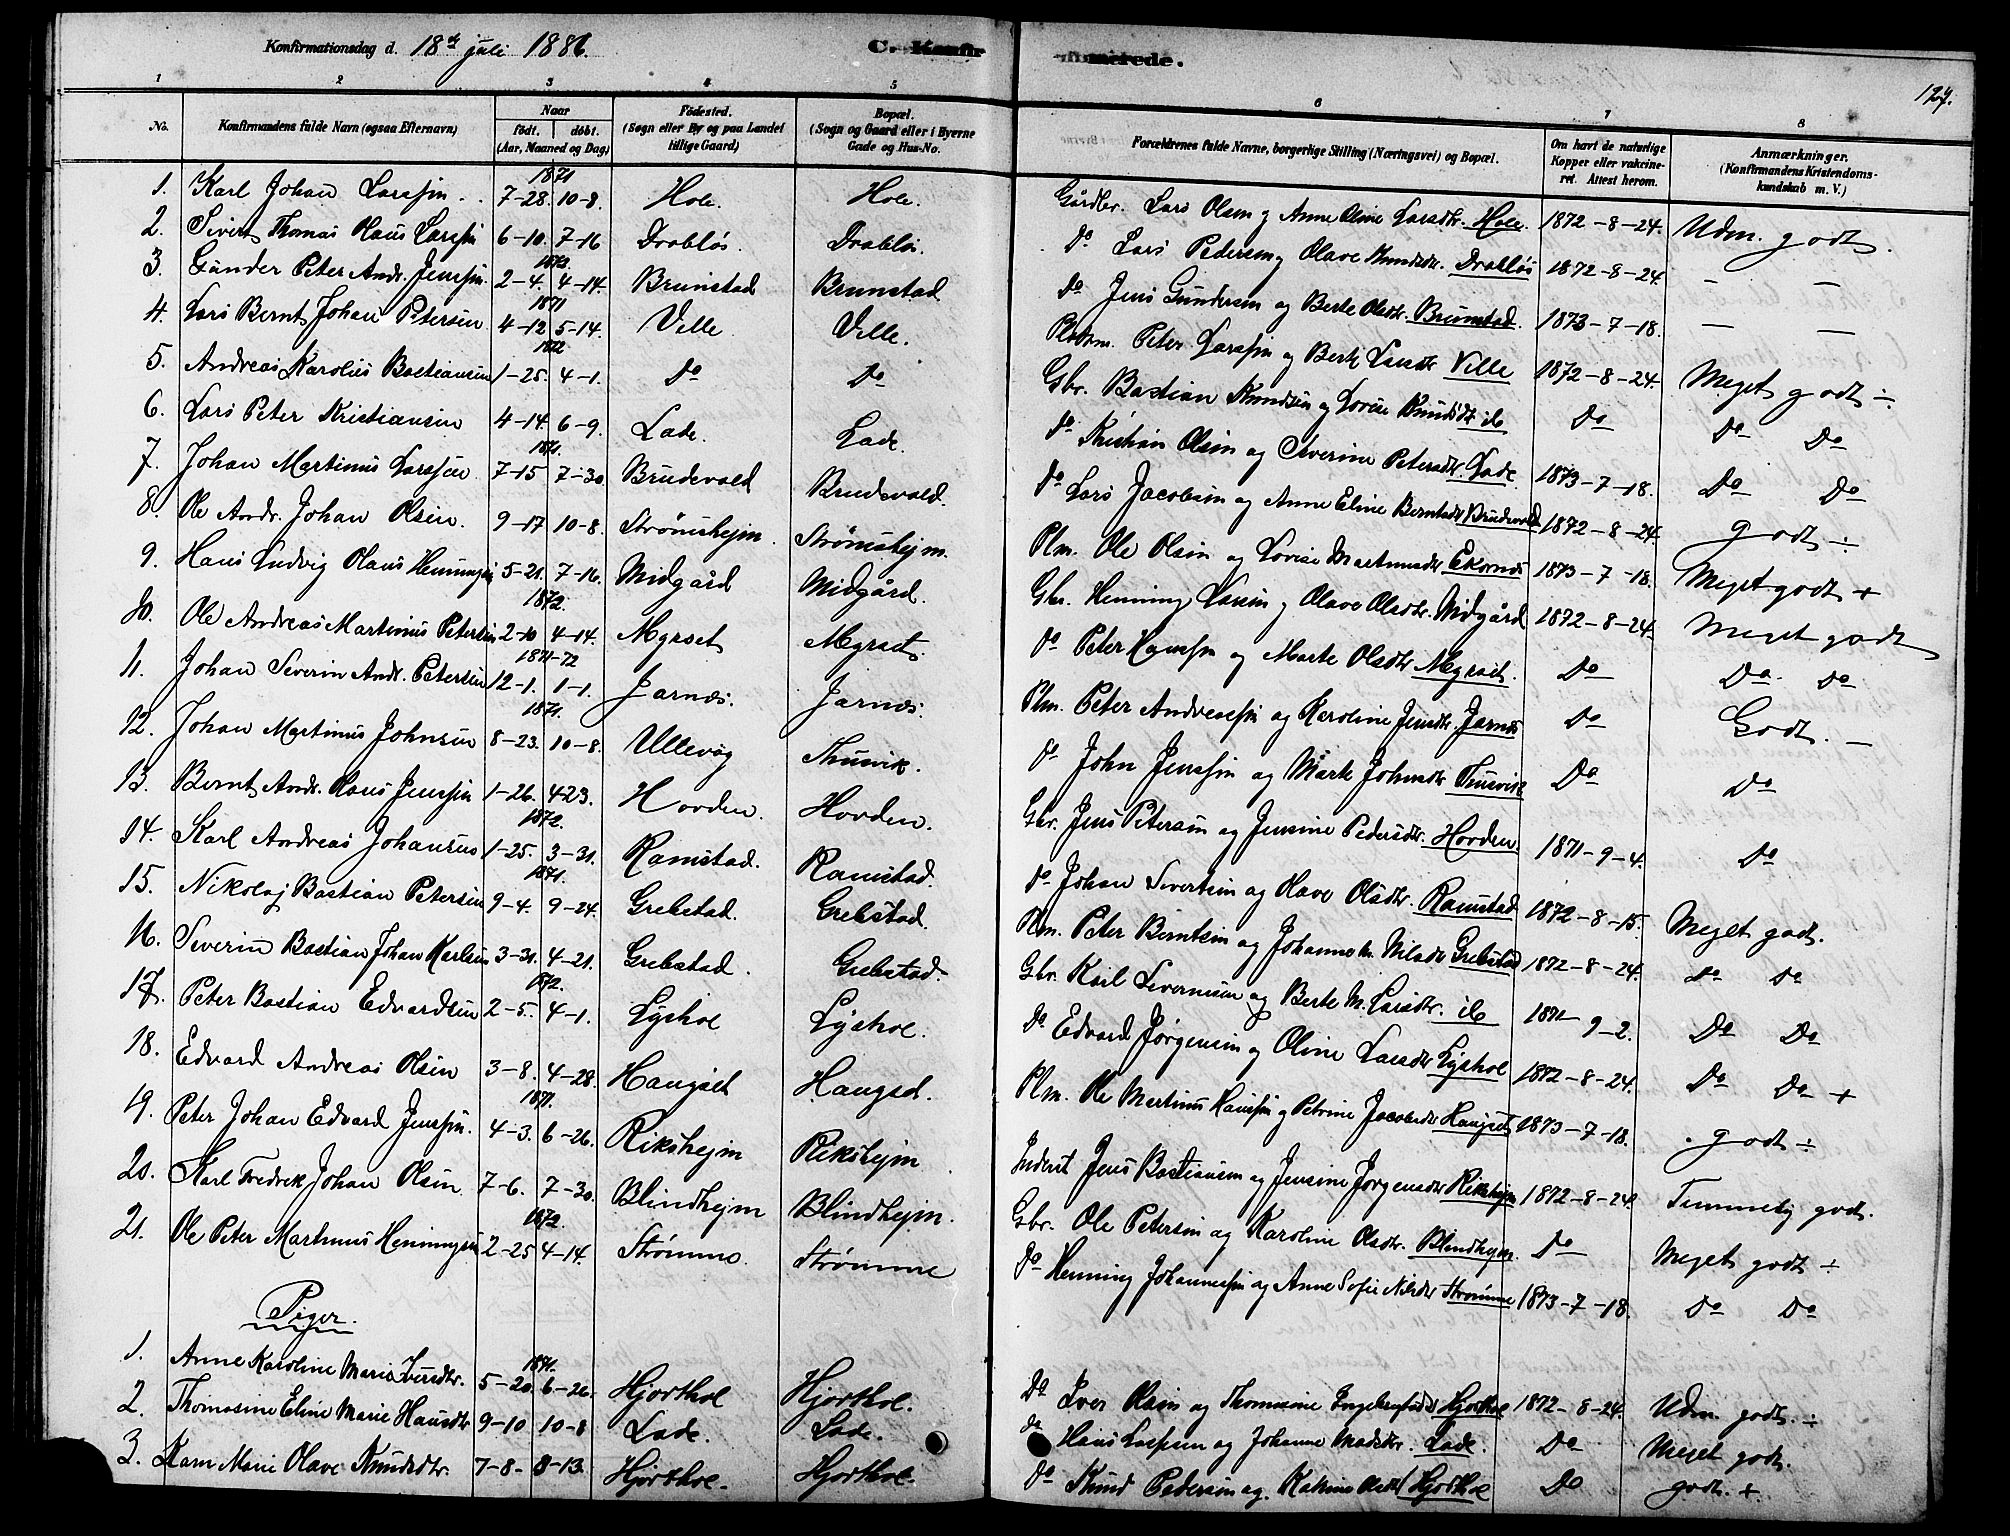 Konfirmationsdag d. 18de juli 1886. C. Konfir merede. 127.
1 2 3 4 5 6 7 8
No. Konfirmandens fulde Navn (ogsaa Efternavn) Naar født. døbt. (Aar, Maaned og Dag) Fødested. (Sogn eller By og paa Landet tillige Gaard) Bopæl. (Sogn og Gaard eller i Byerne Gade og Hus-No. Forældrenes fulde Navne, borgerlige Stilling (Næringsvei) og Bopæl. Om havt de naturlige Kopper eller vaccineret. Attest herom. Anmærkninger. (Konfirmandens Kristendomskundskab m. V.)
1871
1. Karl Johan Larssen 7-28. 10-8. Hole. Hole. Gårdbr. Lars Olsen og Anne Oline Larsdtr. Hole. 1872-8-24. Udm. godt.
2. Sivert Thomas Olaus Larssen 6-10. 7-16 Drabløs. Drabløs. Do Lars Pedersen og Olave Knudsdtr. Drabløs 1872-8-24. — —
1872.
3. Gunder Peter Andr. Jenssen. 2-4. 4-14. Brunstad Brunstad Do Jens Gundersen og Berte Olsdtr. Brunstad. 1873-7-18. — —
1871
4. Lars Bernt Johan Petersen 4-12 5-14. Velle Velle. Peter Larssen og Berte Larsdtr Velle 1872-8-24. Meget godt ÷
1872
5. Andreas Karolius Bastiansen 1-25. 4-1. Do Do Gbr. Bastian Knudsen og Lovise Knudsdtr ib Do Do Do
6. Lars Peter Kristiansen 4-14. 6-9. Lade. Lade. Do Kristian Olsen og Severine Petersdtr. Lade. 1873-7-18. Do Do
1871.
7. Johan Martinus Larssen 7-15 7-30 Brudevold Brudevold. Do Lars Jacobsen og Anne Eline Berntsdtr Brudevold 1872-8-24. godt ÷
8. Ole Andr. Johan Olsen. 9-17 10-8. Strømshejm. Strømshejm. Plm. Ole Olsen og Lovise Martinusdtr Ekornes 1873-7-18. Meget godt +
9. Hans Ludvig Olaus Henningsen 5-21. 7-16. Midgård Midgård. Gbr. Henning Larsen og Olave Olsdtr. Midgård 1872-8-24. Meget godt
1872.
10. Ole Andreas Martinus Petersen 2-10 4-14. Myrset Myrset. Do Peter Hanssen og Marte Olsdtr Myrset. Do Do Do
1871-72
11. Johan Severin Andr. Petersen 12-1. 1-1. Jarnes. Jarnes. Plm. Peter Andreassen og Karoline Jensdtr. Jarnes Do Godt. —
1871.
12. Johan Martinus Johnsen 8-23. 10-8. Ullevåg Thusvik. Do John Jenssen og Marte Johnsdtr Thusvik Do Do
13. Bernt Andr. Olaus Jenssen 1-26. 4-23. Hovden. Hovden. Gbr. Jens Petersen og Jensine Pedersdtr. Hovden. 1871-9-4. Do
1872.
14. Karl Andreas Johansen 1-25. 3-31. Ramstad. Ramstad. Do Johan Sivertsen og Olave Olsdtr. Ramstad 1872-8-15. Meget godt.
1871.
15. Nikolaj Bastian Petersen 9-4. 9-24. Grebstad. Grebstad. Plm. Peter Berntsen og Johanne Nilsdtr Grebstad 1872-8-24. Do Do
16. Severin Bastian Johan Karlsen 3-31. 4-21. Grebstad. Grebstad. Gbr. Karl Severinsen og Berte M. Larsdtr. ib 1871-9-2. Do Do
1872.
17. Peter Bastian Edvardsen 2-5. 4-1. Lyshol Lyshol. Do Edvard Jørgensen og Oline Larsdtr Lyshol 1872-8-24. Do Do +
18. Edvard Andreas Olsen 3-8. 4-28. Haugset Haugset. Plm. Ole Martinus Hanssen og Petrine Jacobsdtr Haugset 1873-7-18. godt ÷
1871.
19. Peter Johan Edvard Jenssen. 4-3. 6-26. Rikshejm Rikshejm Inderst Jens Bastiansen og Jensine Jørgensdtr Rikshejm 1872-8-24. Temmelig godt.
20. Karl Fredrik Johan Olsen. 7-6. 7-30. Blindhejm Blindhejm. Gbr. Ole Petersen og Karoline Olsdtr. Blindhejm. Do Meget godt ÷
1872.
21. Ole Peter Martinus Henningsen 2-25 4-14. Strømme. Strømme Do Henning Johannessen og Anne Sofie Nilsdtr Strømme 1873-7-18. Do Do
Piger.
1871.
1. Anne Karoline Marie Iversdtr. 5-20. 6-26. Hjorthol Hjorthol. Do Iver Olsen og Thomasine Hjorthol 1872-8-24. Udm. godt. ÷
2. Thomasine Eline Marie Hansdtr 9-10 10-8 Lade. Lade. Do Hans Larssen og Johanne Madsdtr. Lade. Do Meget godt.
3. Karn Marie Olave Knudsdtr. 7-8. 8-13. Hjorthol. Hjorthol. Do Knud Pedersen og Katrine Olsdtr Hjorthol Do godt. +